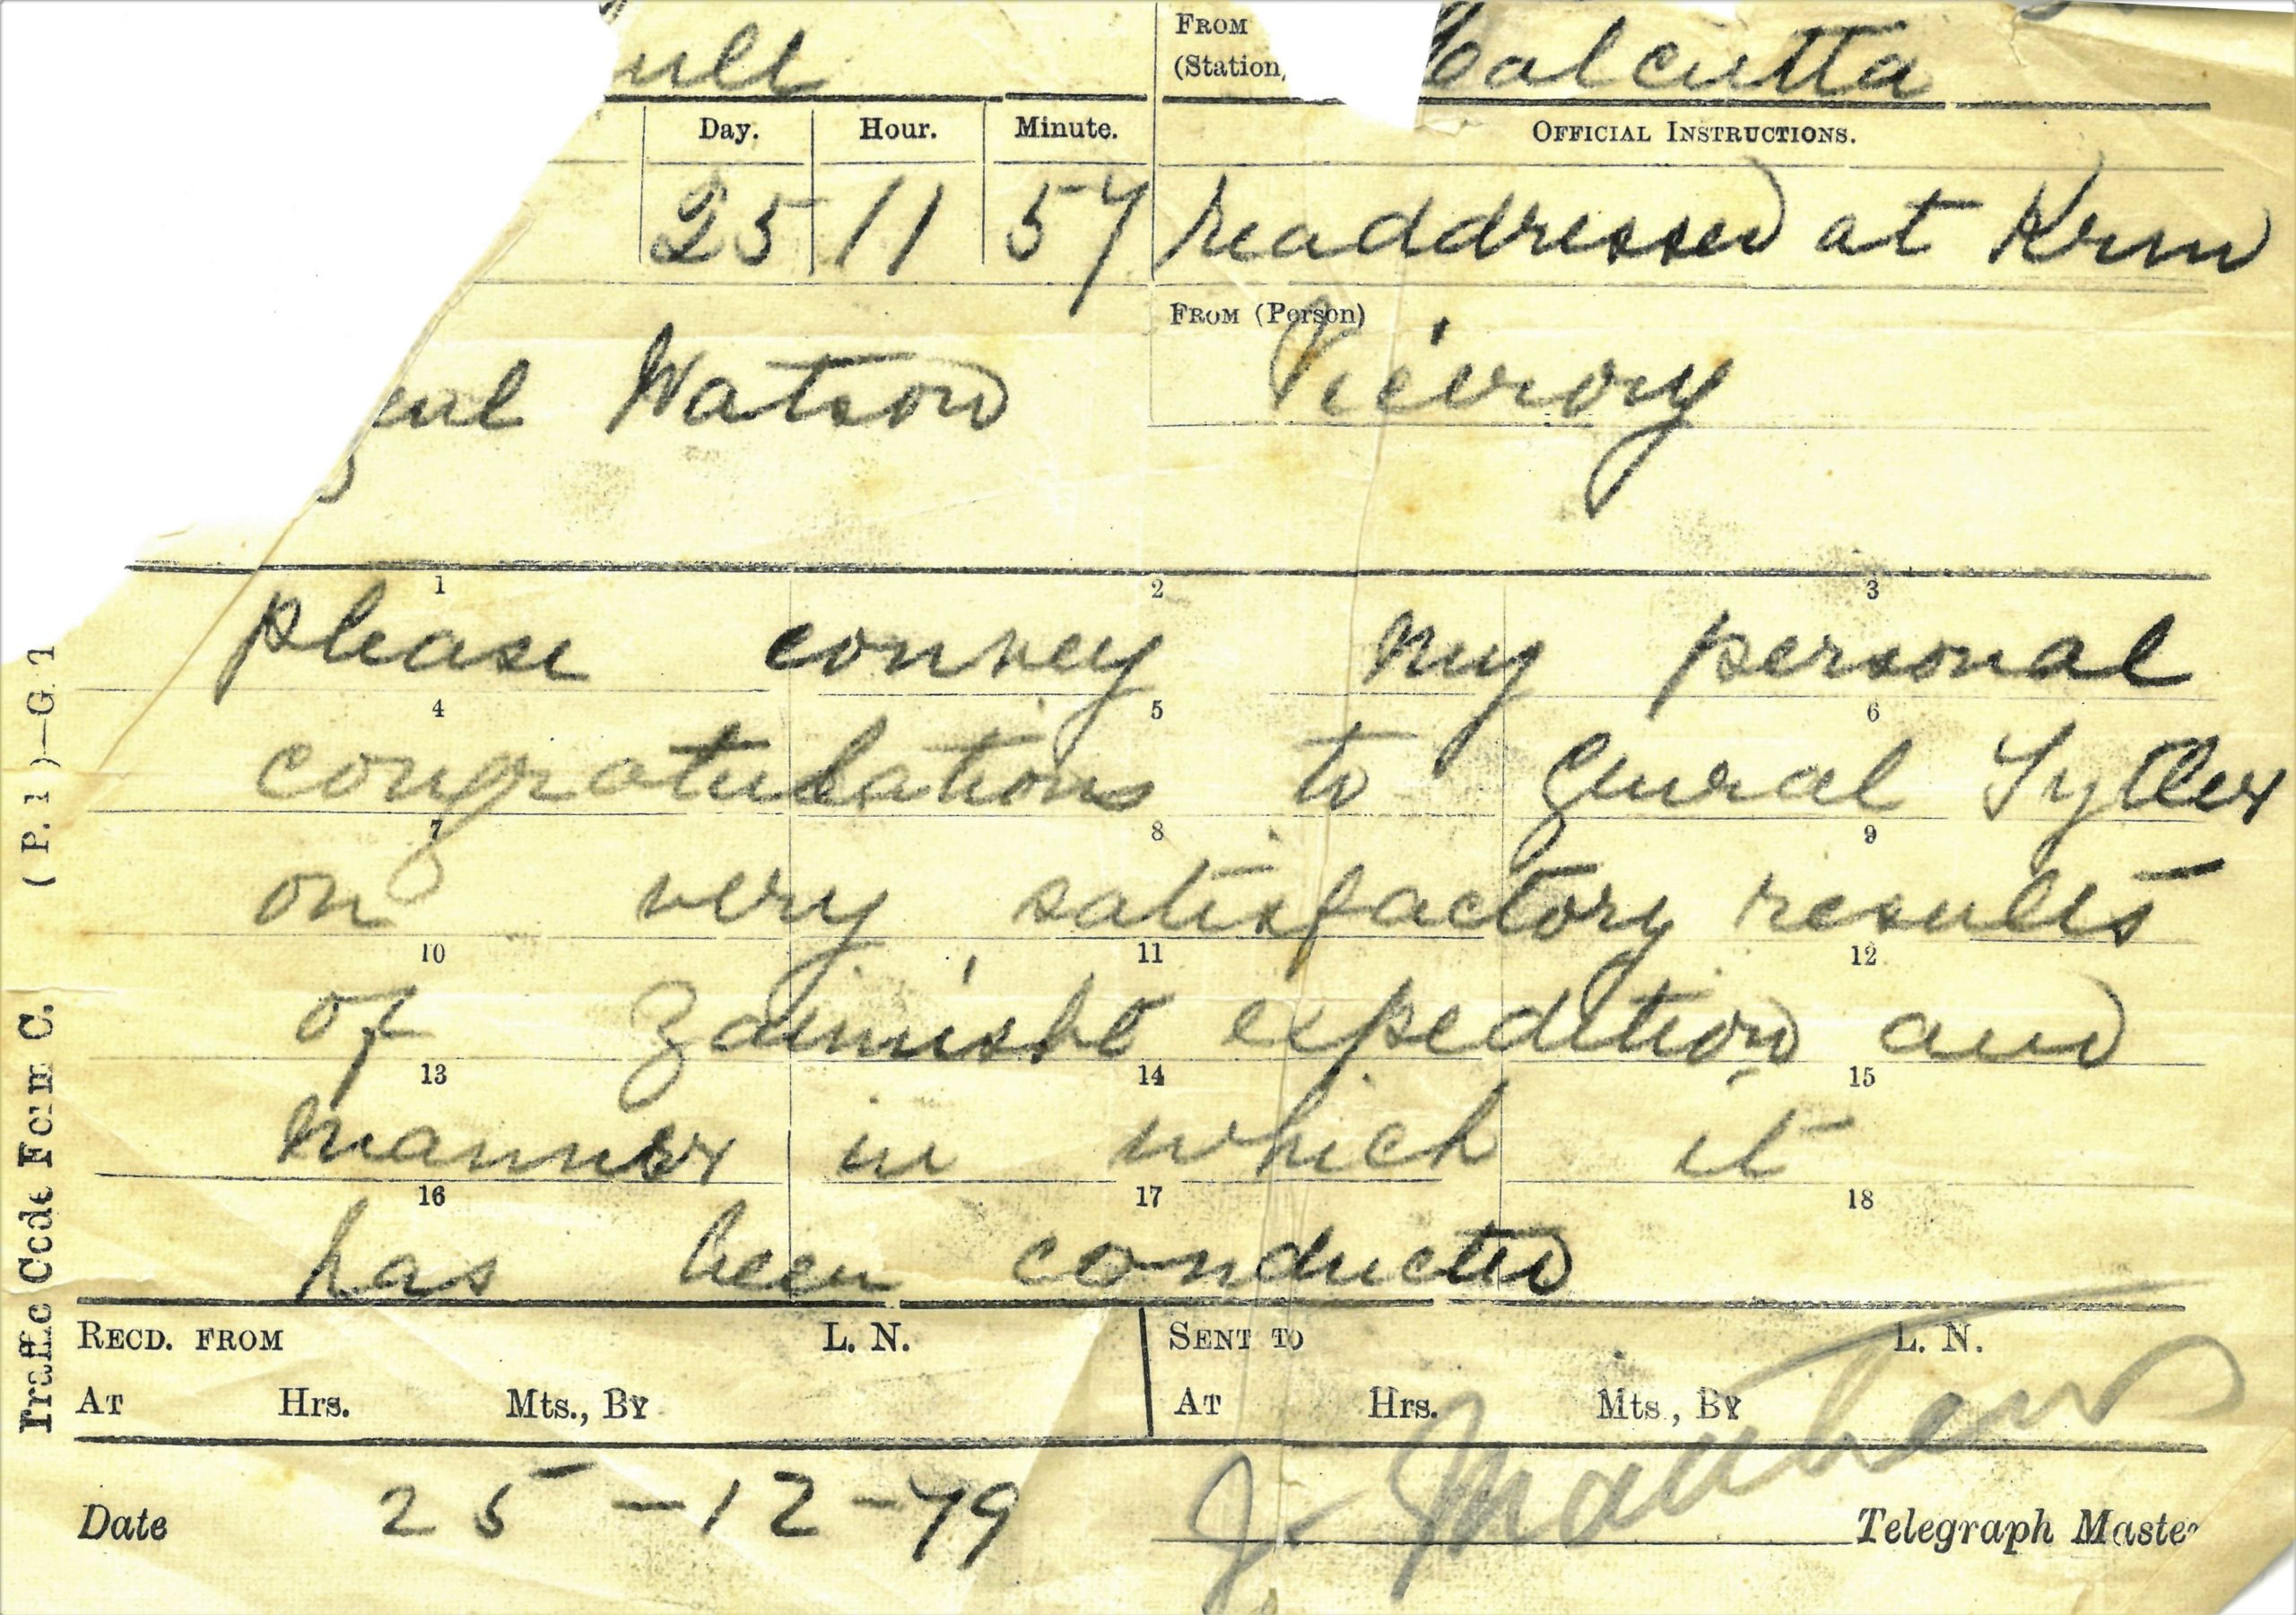 ull FROM (Station, Calcutta
Day. Hour. Minute. OFFICIAL INSTRUCTIONS.
25 11 57 readdressed at Krm
FROM (Person)
eral Watson Viceroy
1 2 3
please convey my personal
4 5 6
congratulations to General Tytler
7 8 9
on very satisfactory results
10 11 12
of Zaimisht expedition and
13 14 15
manner in which it
16 17 18
has been conducted
RECD. FROM L. N. SENT TO L. N.
AT Hrs. Mts., BY AT Hrs. Mts., BY
Date 25-12-79 J. Matthews Telegraph Master
Traffic Code Form C. (P. 1)—G 1